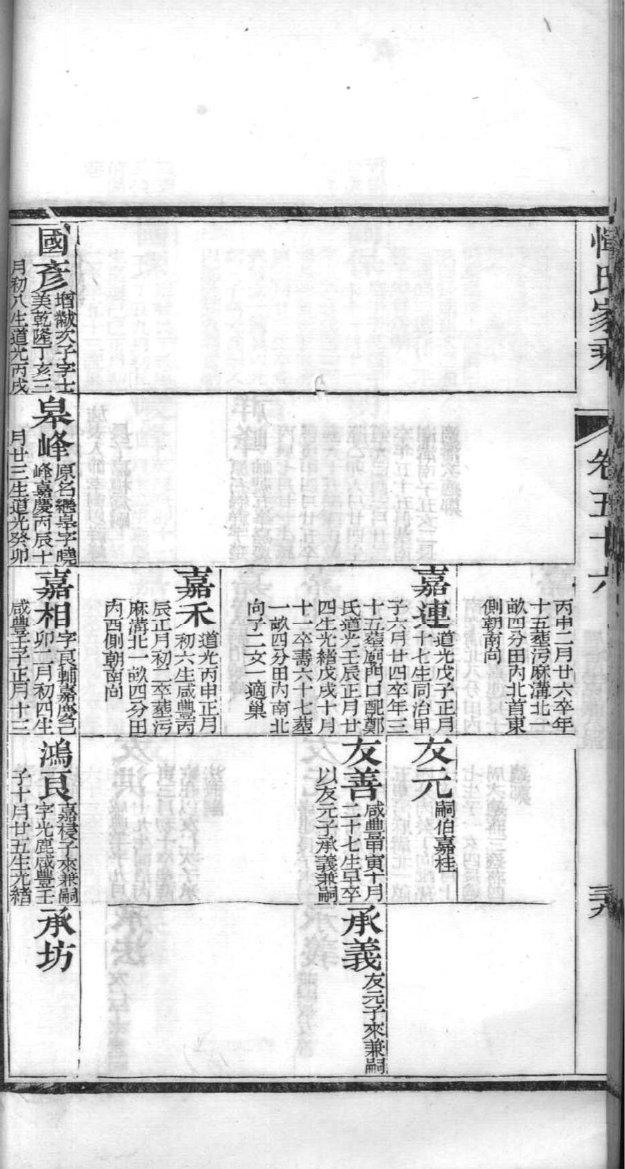 惲氏家乘
卷五十六
三九
丙申二月廿六卒年
十五塟污麻溝北一
畝四分田内北首東
側朝南尚
嘉連
道光戊子正月
十七生同治甲
子六月廿四卒年三
十五塟廟門口配鄭
氏道光壬辰正月廿
四生光緒戊戌十月
十一卒壽六十七塟
一畝四分田内南北
向子二女一適巢
嘉禾
道光丙申正月
初六生咸豐丙
辰正月初二卒塟污
麻溝北一畝四分田
内西側朝南尚
友元
嗣伯嘉桂
友善
咸豐甲寅十月
二十七生早卒
以友元子承義兼嗣
承義
友元子來兼嗣
國彥
增黻次子字士
美乾隆丁亥三
月初八生道光丙戌
皋峰
原名繼皋字曉
峰嘉慶丙辰十
月廿三生道光癸卯
嘉相
字艮輔嘉慶己
卯二月初四生
咸豐壬子正月十三
鴻艮
嘉禝子來兼嗣
字光鹿咸豐壬
子十月廿五生光緒
承坊